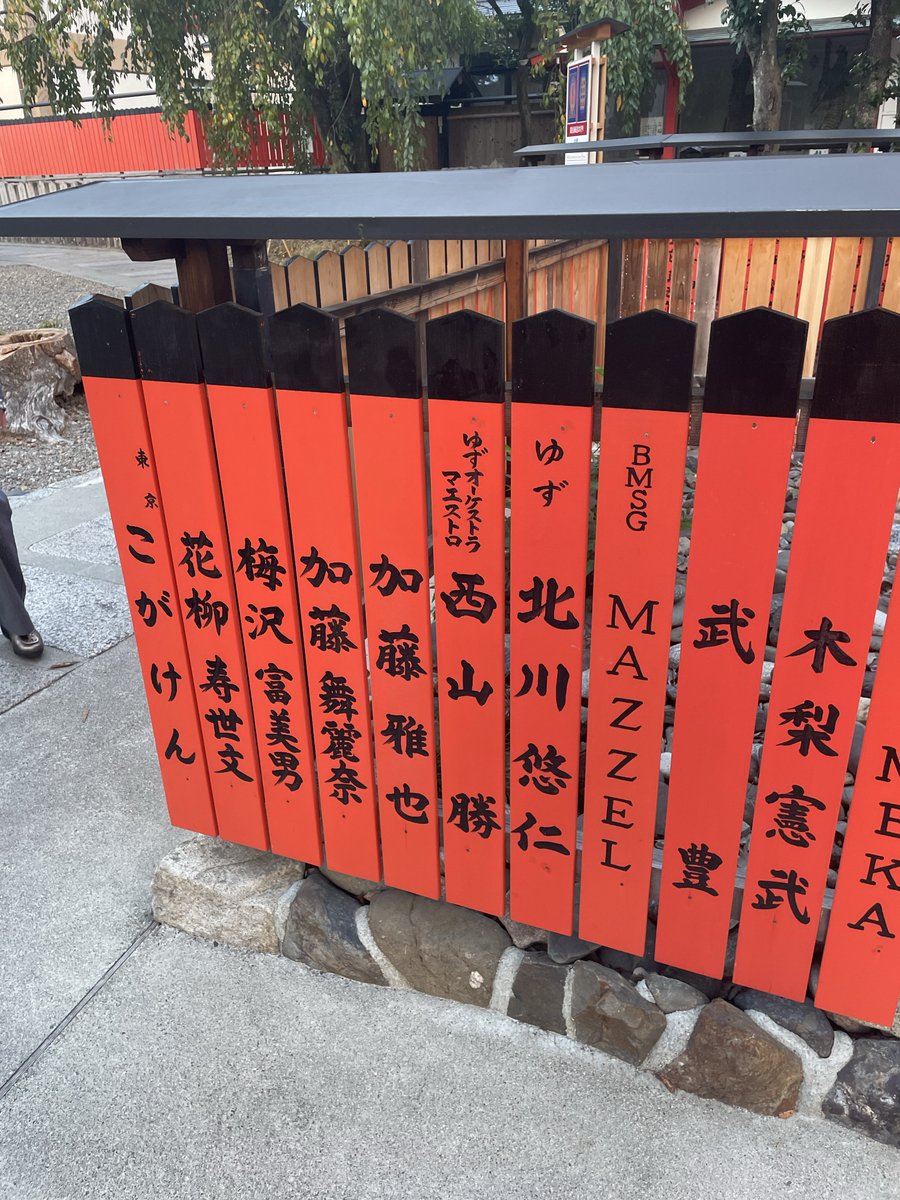 木梨憲武
武 豊
BMSG
MAZZEL
ゆず
北川悠仁
ゆずオーケストラ
マエストロ
西山 勝
加藤雅也
加藤舞麗奈
梅沢富美男
花柳寿世文
東京
こがけん